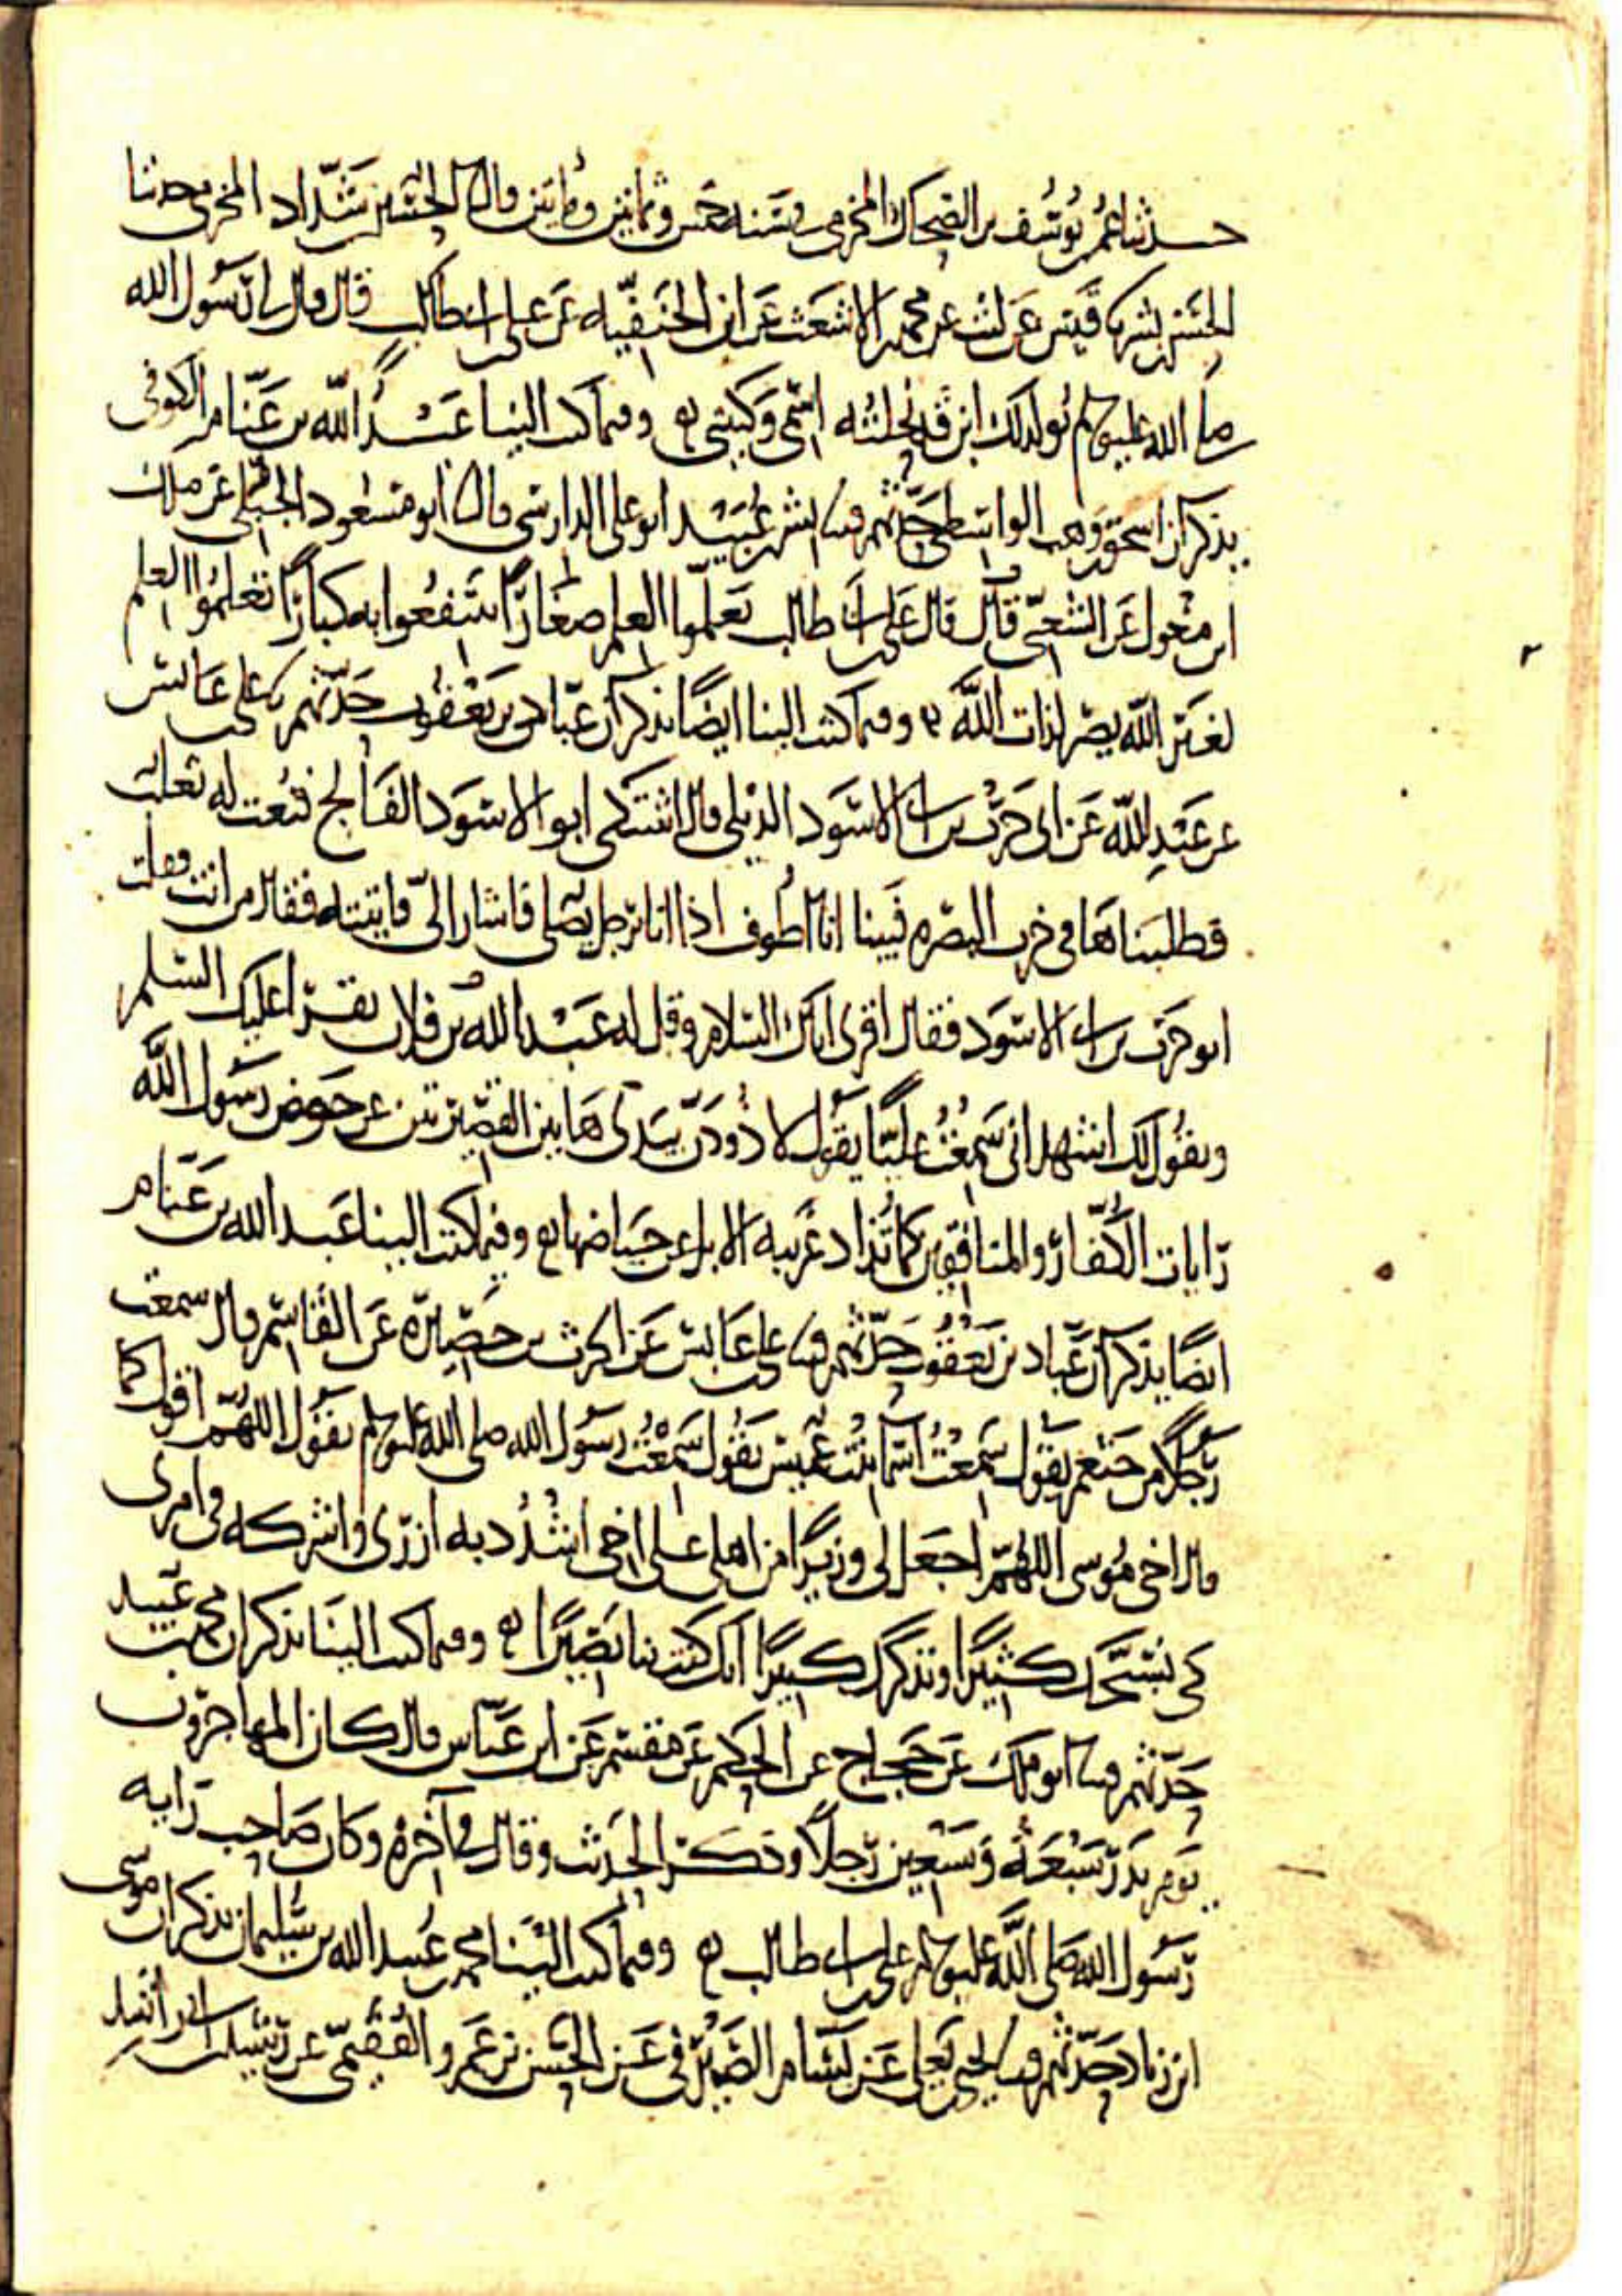 حدثنا عمر بن يوسف بن الضحاك المخرمي سنة خمس وثمانين ومايتين قال نا الحسين بن شداد المخرمي حدثنا
الحسن بن بشر نا قيس عن ليث عن محمد بن الاشعث عن ابن الحنفيه عن علي بن ابي طالب قال قال لي رسول الله
صلى الله عليه وسلم يولد لك ابن قد نحلته اسمي وكنيتي وفيما كتب الينا عبد الله بن غنام الكوفي
يذكر ان اسحق بن وهب الواسطي حدثهم قثنا بشر بن عبيد ابو علي الدارسي قال نا ابو مسعود الجبلي عن ملك
ابن مغول عن الشعبي قال قال علي بن ابي طالب تعلموا العلم صغارا تنتفعوا به كبارا تعلموا العلم
لغير الله يصر لذات الله وفيما كتب الينا ايضا يذكر ان عباد بن يعقوب حدثهم نا علي بن عابس
عن عبد الله عن ابي حرب بن ابي الاسود الديلي قال اشتكى ابو الاسود الفالج فنعت له ثعلب
فطلبناها في خرب البصره فبينا انا اطوف اذا انا برجل يصلي فاشار الي فاتيته فقال من انت فقلت
ابو حرب بن ابي الاسود فقال اقرى اباك السلام وقل له عبد الله بن فلان يقرا عليك السلم
ويقول لك اشهد اني سمعت عليا يقول لاذودن بيدي هاتين القصيرتين عن حوض رسول الله
رايات الكفار والمنافقين كما تذاد غريبه الابل عن حياضها وفيما كتب الينا عبد الله بن غنام
ايضا يذكر ان عباد بن يعقوب حدثهم قثنا علي بن عابس عن الحرث بن حصيره عن القاسم قال سمعت
رجلا من خثعم يقول سمعت اسما بنت عميس تقول سمعت رسول الله صلى الله عليه وسلم يقول اللهم اقول كما
قال اخي موسى اللهم اجعل لي وزيرا من اهلي عليا اخي اشدد به ازري واشركه في امري
كي نسبحك كثيرا ونذكرك كثيرا انك كنت بنا بصيرا وفيما كتب الينا يذكر ان محمد بن عبيد
حدثهم قثنا ابو ملك عن حجاج عن الحكم عن مقسم عن ابن عباس قال كان المهاجرون
يوم بدر سبعه وسبعين رجلا وذكر الحديث وقال في آخره وكان صاحب رايه
رسول الله صلى الله عليه وسلم علي بن ابي طالب وفيما كتب الينا محمد بن عبيد الله بن سليمان يذكر ان موسى
ابن زياد حدثهم قثنا يحيى بن يعلى عن بسام الصيرفي عن الحسن بن عمرو الفقيمي عن رشيد